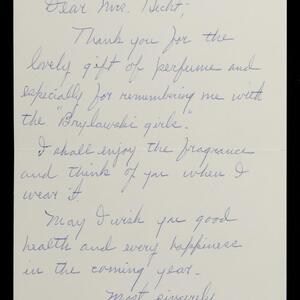 Dear Mrs. Hecht,
Thank you for the
lovely gift of perfume and
especially for remembering me with
the "Brylawski girls".
I shall enjoy the fragrance
and think of you when I
wear it.
May I wish you good
health and every happiness
in the coming year -
Most sincerely